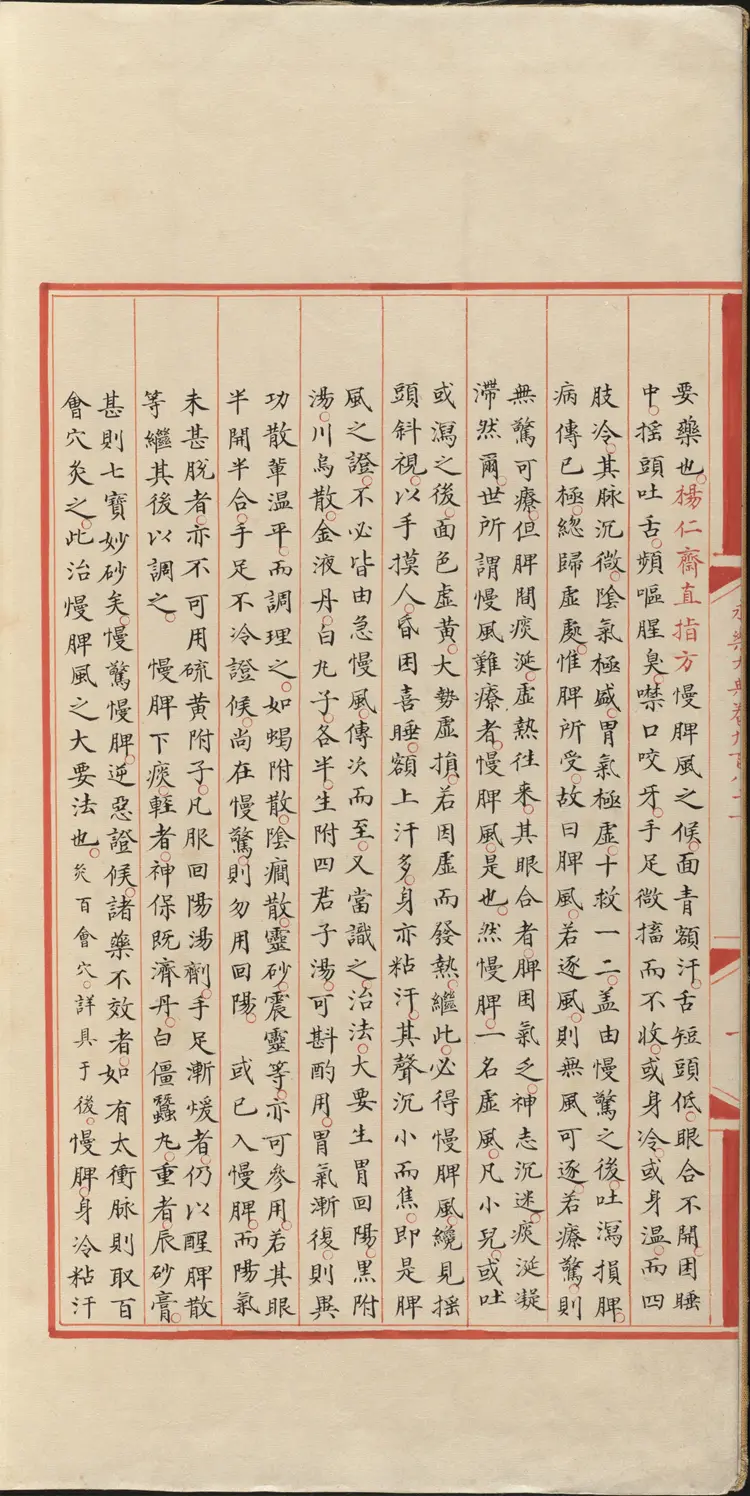 要藥也楊仁齋直指方慢脾風之候面青額汗舌短頭低眼合不開困睡
中搖頭吐舌頻嘔腥臭噤口咬牙手足微搐而不收或身冷或身溫而四
肢冷其脉沉微陰氣極盛胃氣極虛十救一二盖由慢驚之後吐瀉損脾
病傳已極緫歸虛處惟脾所受故曰脾風若逐風則無風可逐若療驚則
無驚可療但脾間痰涎虛熱往來其眼合者脾困氣乏神志沉迷痰涎凝
滯然爾世所謂慢風難療者慢脾風是也然慢脾一名虛風凡小兒或吐
或瀉之後面色虛黃大勢虛損若因虛而發熱繼此必得慢脾風纔見搖
頭斜視以手摸人昏困喜睡額上汗多身亦粘汗其聲沉小而焦即是脾
風之證不必皆由急慢風傳次而至又當識之治法大要生胃回陽黑附
湯川烏散金液丹白丸子各半生附四君子湯可斟酌用胃氣漸復則異
功散軰温平而調理之如蝎附散陰癎散靈砂震靈等亦可參用若其眼
半開半合手足不冷證候尚在慢驚則勿用回陽或已入慢脾而陽氣
未甚脫者亦不可用硫黃附子凡服回陽湯劑手足漸煖者仍以醒脾散
等繼其後以調之慢脾下痰輕者神保既濟丹白僵蠶丸重者辰砂膏
甚則七寶妙砂矣慢驚慢脾逆惡證候諸藥不效者如有太衝脉則取百
會穴灸之此治慢脾風之大要法也灸百會穴詳具于後慢脾身冷粘汗